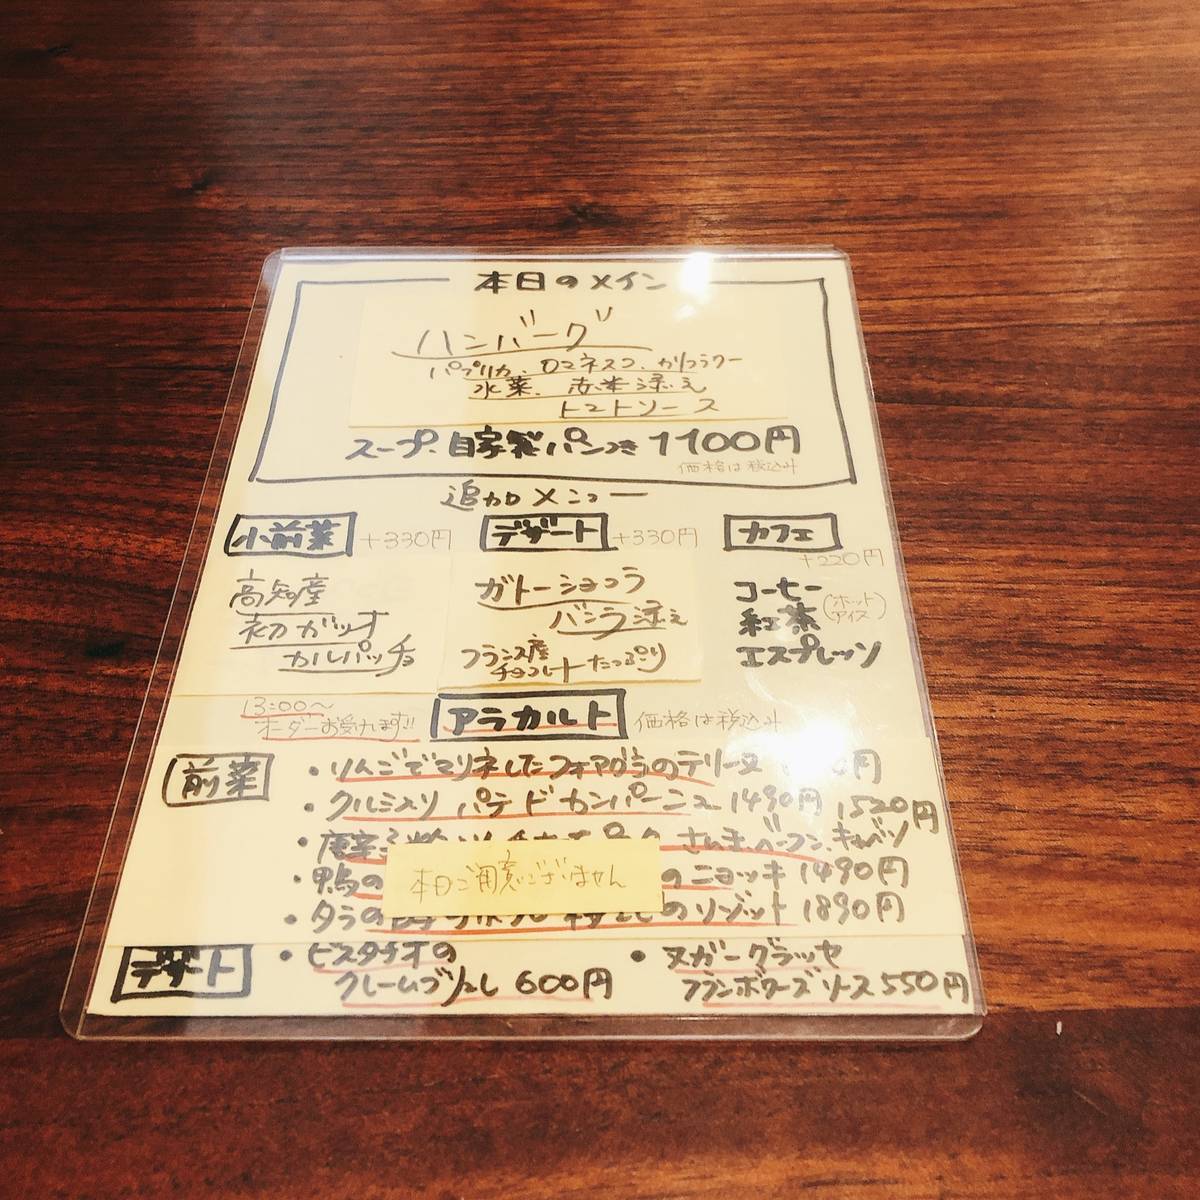 本日のメイン
ハンバーグ
パプリカ、ロマネスコ、カリフラワー
水菜、赤米添え
トマトソース
スープ、自家製パンつき 1100円
価格は税込み
追加メニュー
小前菜 +330円
高知産
初ガツオ
カルパッチョ
デザート +330円
ガトーショコラ
バニラ添え
フランス産
チョコレートたっぷり
カフェ
+220円
コーヒー
紅茶 (ホット アイス)
エスプレッソ
13:00〜
オーダーお受けします!!
アラカルト 価格は税込み
前菜
・りんごでマリネしたフォアグラのテリーヌ 円
・クルミ入り パテ ド カンパーニュ 1490円 1520円
・唐辛子 ベーコン、キャベツ
・鴨の のニョッキ 1490円
・タラの のリゾット 1890円
本日ご用意ございません
デザート
・ピスタチオの
クレームブリュレ 600円
・ヌガーグラッセ
フランボワーズソース 550円